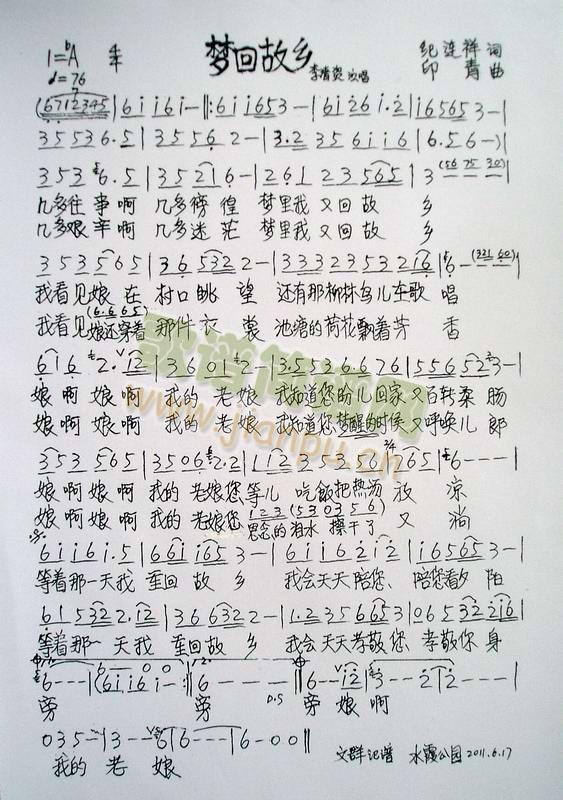 梦回故乡
1=bA
♩=76
纪连祥 词
印青 曲
李 演唱
(6712345|6 i i6 i-‖:6 i i653-|6 i26 i.2|i6565 3-|
35536.5|35562-|3.2 35 6 i i6|6.56-)|
3536.5|35216-|2612356 5|3(56 75 30)|
几多往事啊 几多徬徨 梦里我又回故 乡
几多艰辛啊 几多迷茫 梦里我又回故 乡
353565|365322-|33323532 16|6-(321 60)|
我看见娘在 村口眺 望 还有那柳林鸟儿在歌 唱
(6.6 65)
我看见娘还穿着 那件衣 裳 池塘的荷花飘着芳 香
6 i62.12|36012-|3.5536.676|556523-|
娘啊娘啊 我的 老娘 我知道您盼儿回家又百转柔肠
娘啊娘啊 我的 老娘 我知道您梦醒的时候又呼唤儿郎
353 565|35062.2|112353 56|i65|6---|
娘啊娘啊 我的 老娘您等儿 吃飯把热汤 放 凉
123(530356)
娘啊娘啊 我的 老娘您思念的泪水 擦干了 又 淌
6 i i6 i.5|66 i i653-|6 i i62 i2|i65653-|
等着那一天我 重回故 乡 我会天天陪您、陪您看夕 阳
6153 22.12|366322-|1.2356653|06532216|
等着那一天我 重回故 乡 我会天天孝敬您 孝敬你身
6---|(6 i i6 i-:‖6---‖6--i2|3--2|2---|
旁 旁 D.S 旁 娘 啊
035-|3--6|6---|6-00‖
我的 老 娘
文群记谱 水霞公园 2011.6.17
歌谱简谱网
www.jianpu.cn